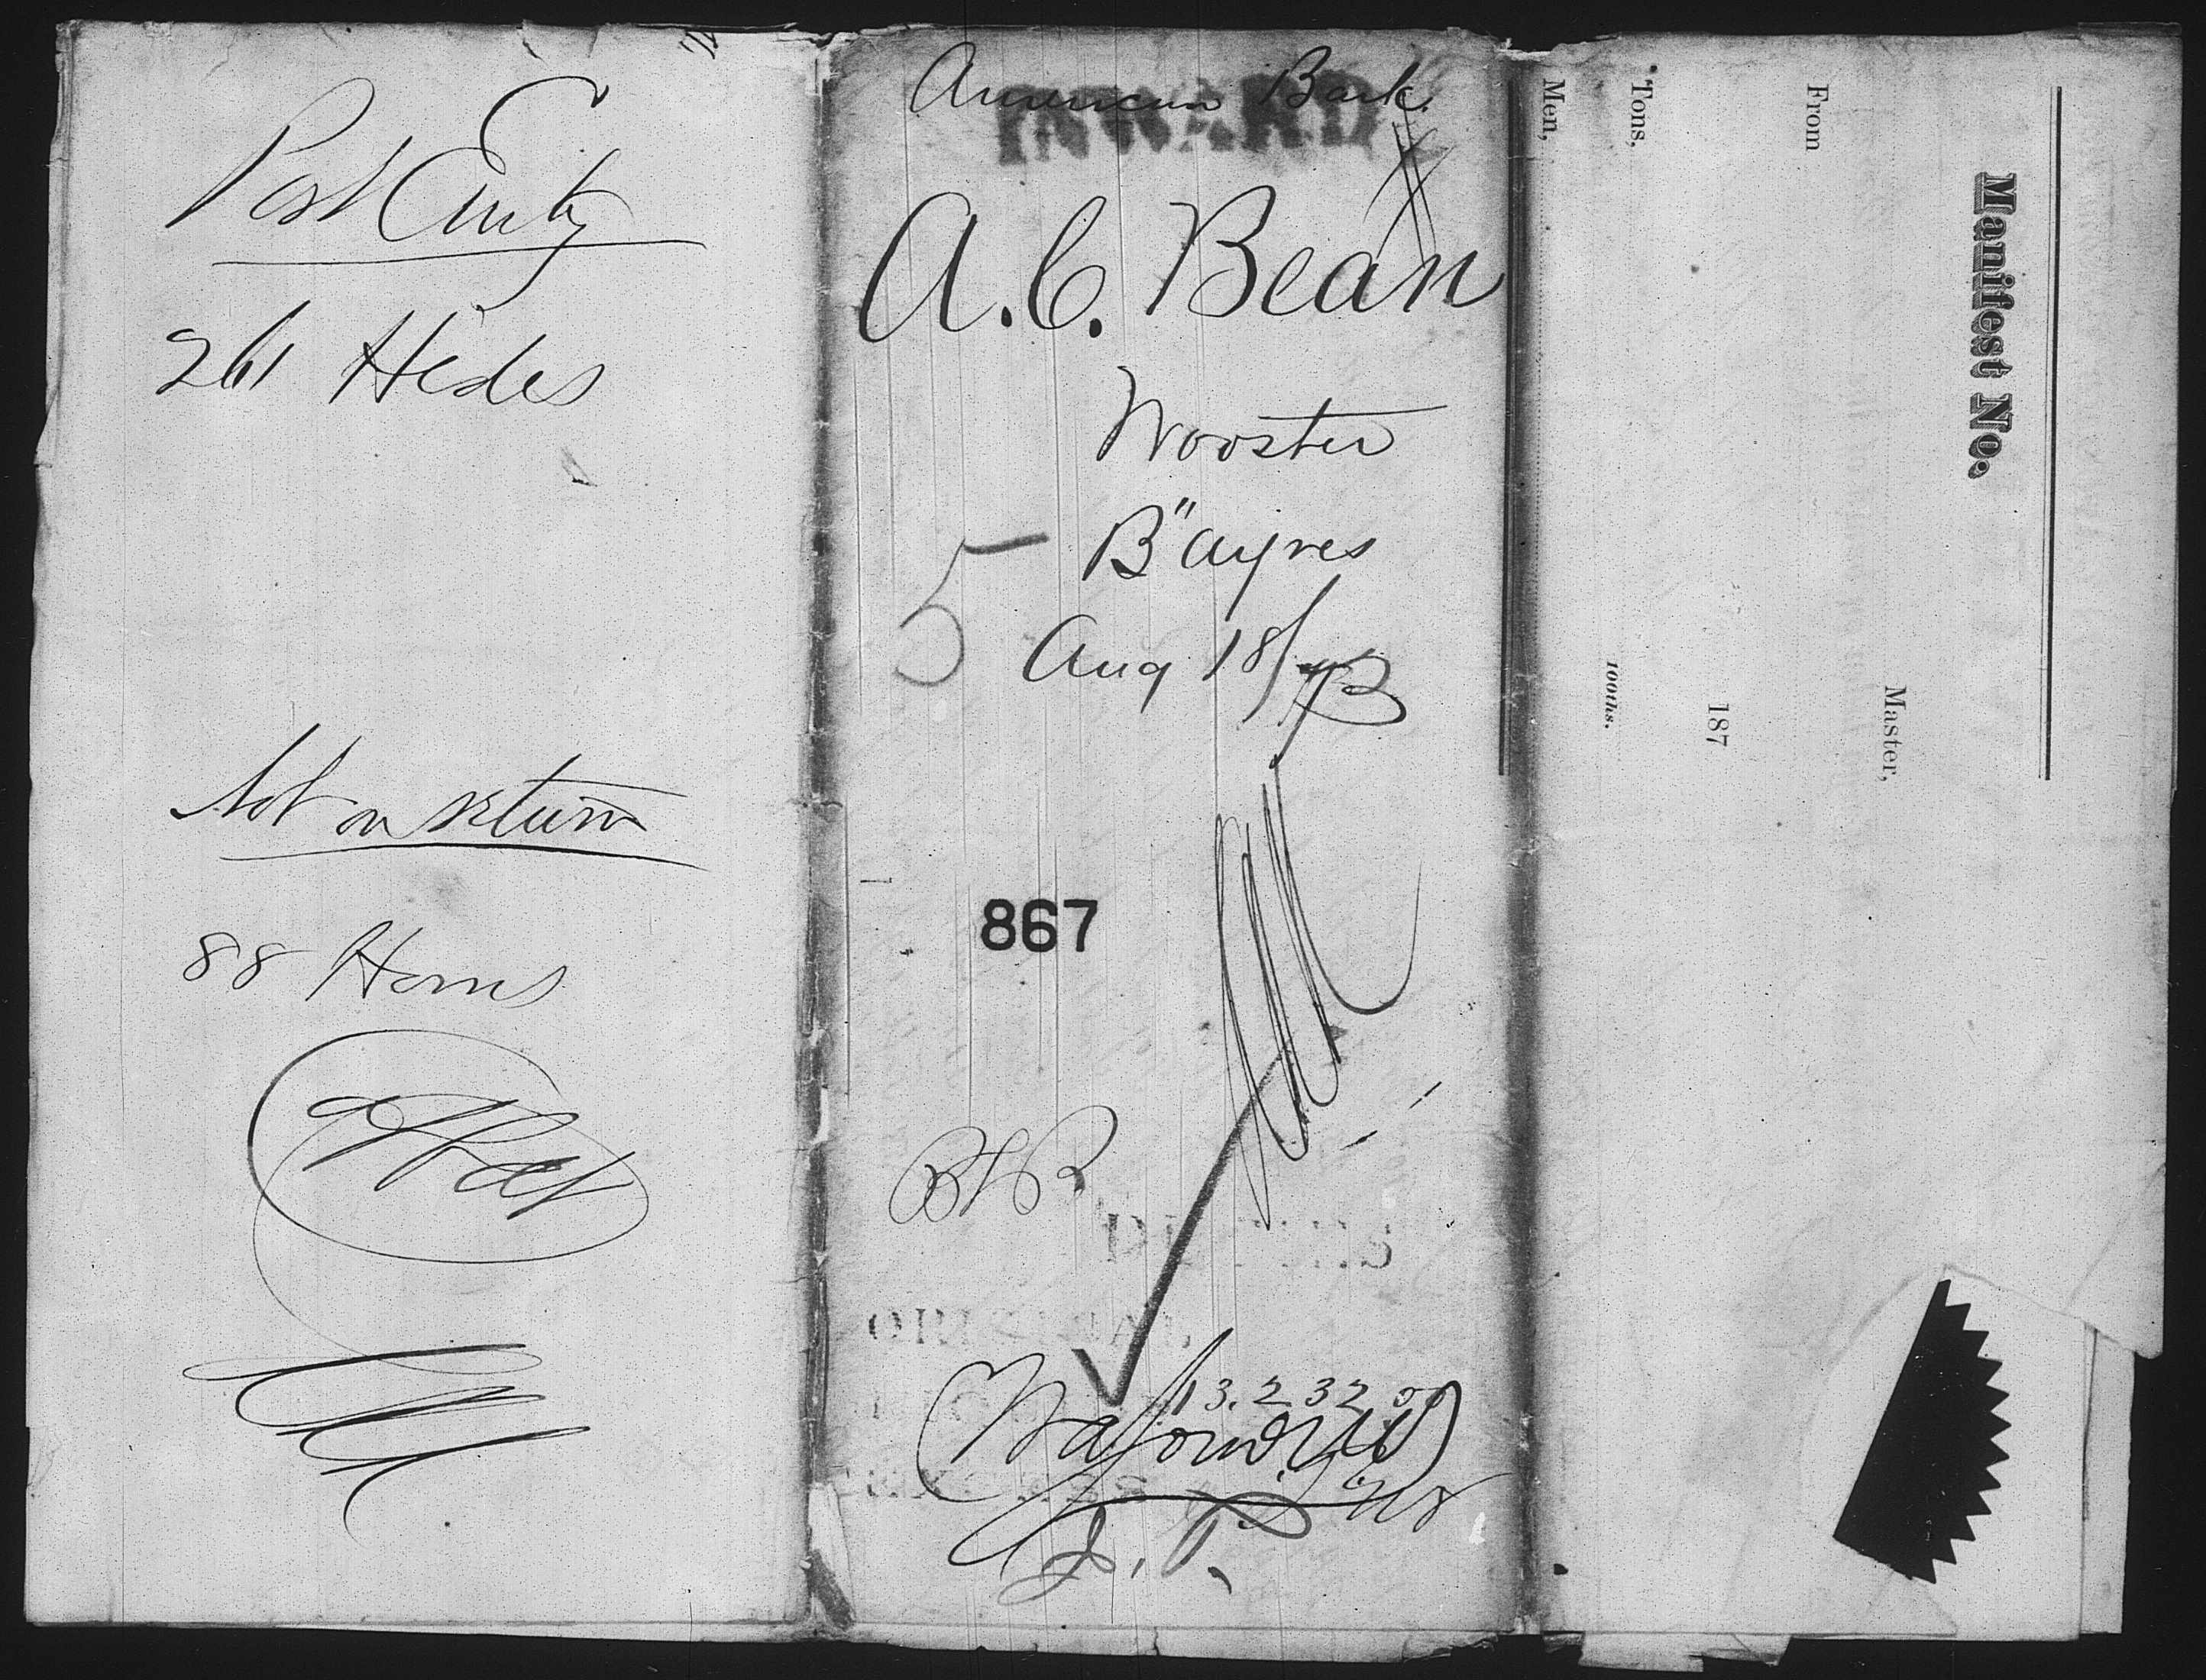 Post Entry
261 Hides
Not on return
88 Horns
American Bark
INWARD
A. C. Bean
Wooster
B" Ayres
5
Aug 18/73
867
13.232
Manifest No.
Master,
From
187
Tons,
100ths.
Men,